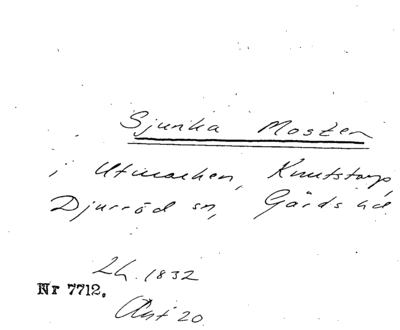 Sjunka Mosten
i Utmarken, Knutstorp,
Djurröd sn, Gärds hd
Lh. 1832
Nr 7712.
Ant 20